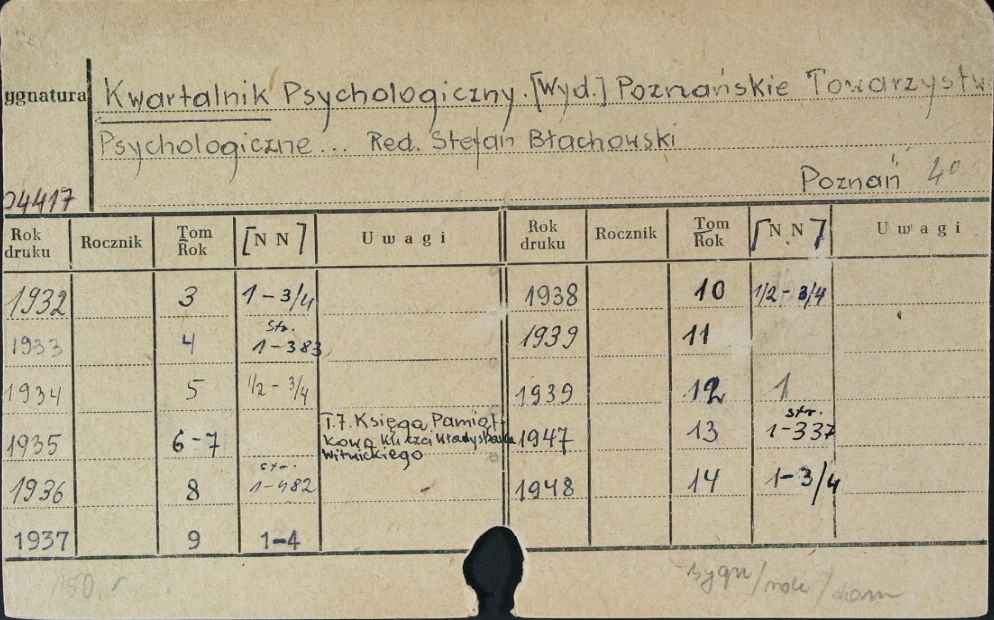 ygnatura Kwartalnik Psychologiczny. [Wyd.] Poznańskie Towarzystw
Psychologiczne... Red. Stefan Błachowski
Poznań 4°
04417
Rok druku Rocznik Tom Rok [NN] Uwagi Rok druku Rocznik Tom Rok [N.N] Uwagi
1932 3 1-3/4 1938 10 1/2-3/4
1933 4 str. 1-383 1939 11
1934 5 1/2-3/4 1939 12 1
1935 6-7 T.7. Księga Pamiąt- kowa Władysława Witwickiego 1947 13 str. 1-337
1936 8 str. 1-482 1948 14 1-3/4
1937 9 1-4
150.
sygn/rok/